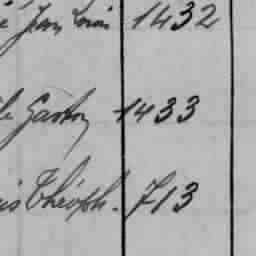 Jean Louis 1432
Gaston 1433
Théoph. 713